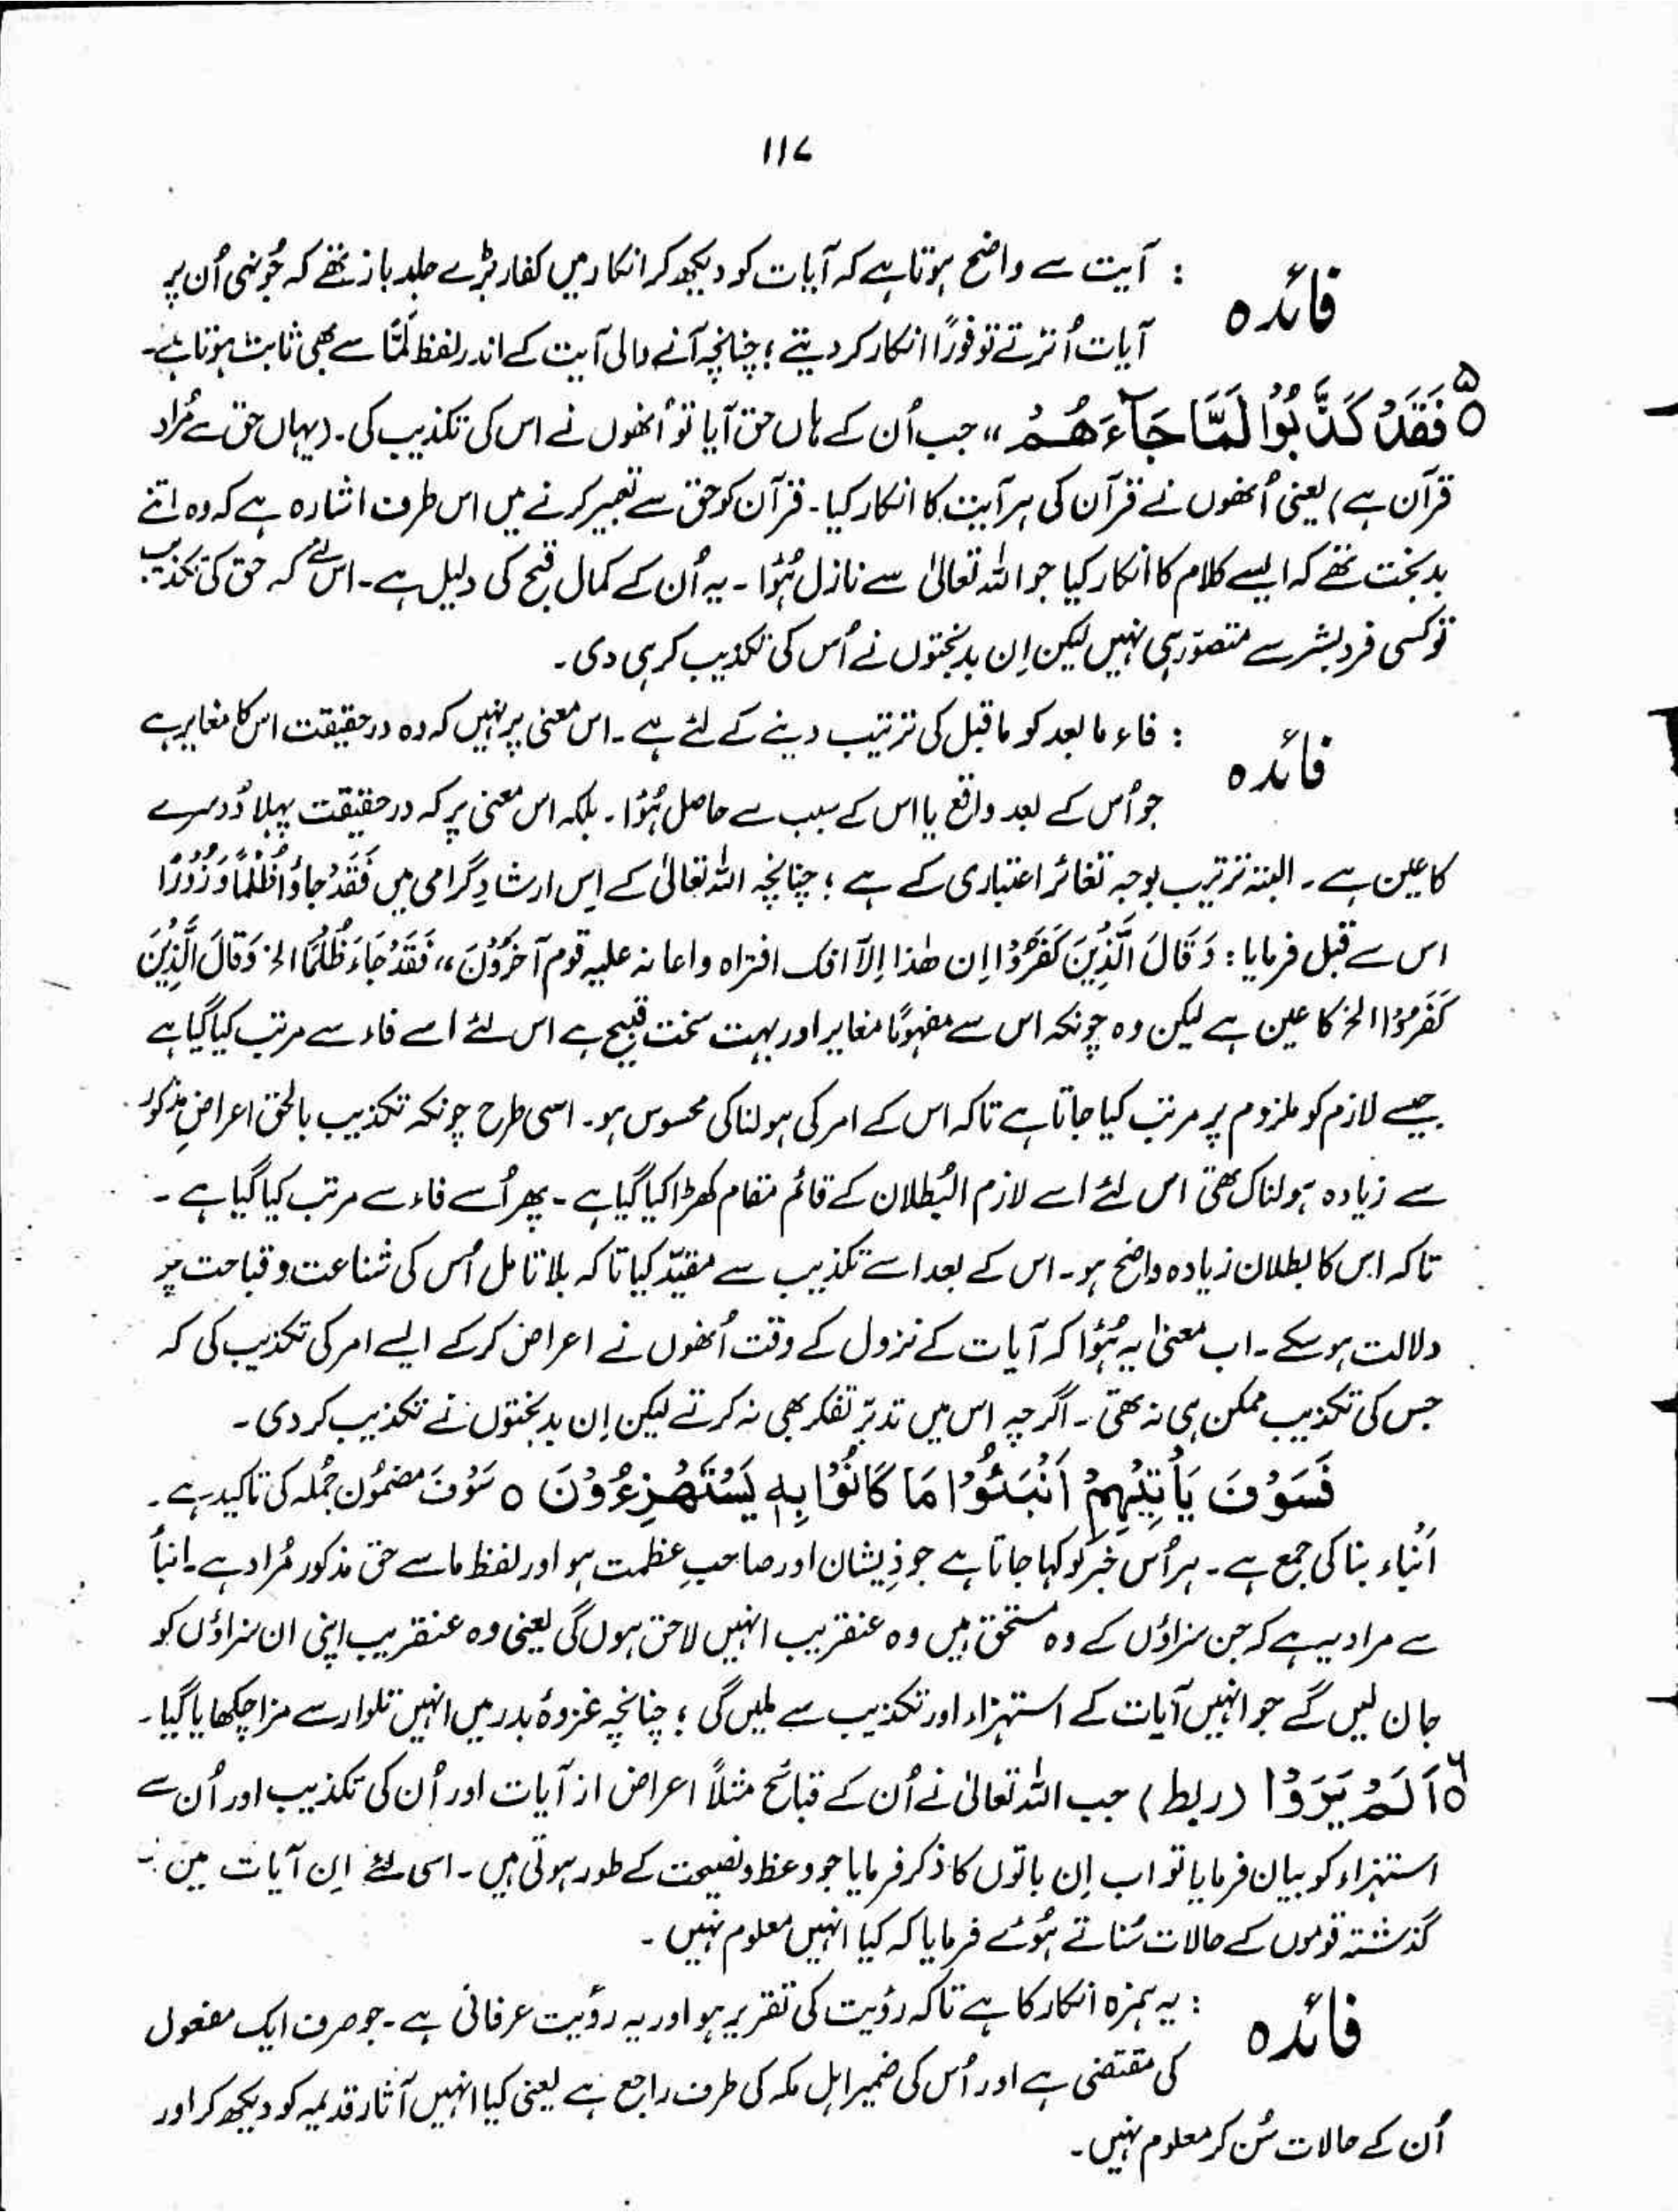 ۱۱۷
فائدہ : آیت سے واضح ہوتا ہے کہ آیات کو دیکھ کر انکار میں کفار بڑے جلد باز تھے کہ جُونہی اُن پر
آیات اُترتے تو فورًا انکار کر دیتے ؛ چنانچہ آنے والی آیت کے اندر لفظ لَمَّا سے بھی ثابت ہوتا ہے۔
۵ فَقَدْ كَذَّبُوْا لَمَّا جَآءَهُمْ ،، جب اُن کے ہاں حق آیا تو اُنھوں نے اس کی تکذیب کی۔ (یہاں حق سے مُراد
قرآن ہے) یعنی اُنھوں نے قرآن کی ہر آیت کا انکار کیا۔ قرآن کو حق سے تعبیر کرنے میں اس طرف اشارہ ہے کہ وہ اتنے
بدبخت تھے کہ ایسے کلام کا انکار کیا جو اللہ تعالیٰ سے نازل ہُوا۔ یہ اُن کے کمال قبح کی دلیل ہے۔ اس لئے کہ حق کی تکذیب
تو کسی فرد بشر سے متصوّر ہی نہیں لیکن اِن بدبختوں نے اُس کی تکذیب کر ہی دی۔
فائدہ : فاء مابعد کو ماقبل کی ترتیب دینے کے لئے ہے۔ اس معنی پر نہیں کہ وہ درحقیقت اس کا مغایر ہے
جو اُس کے بعد واقع یا اس کے سبب سے حاصل ہُوا۔ بلکہ اس معنی پر کہ درحقیقت پہلا دُوسرے
کا عین ہے۔ البتہ ترتیب بوجہ تغائر اعتباری کے ہے ؛ چنانچہ اللہ تعالیٰ کے اِس ارشادِ گرامی میں فَقَدْ جَاؤُا ظُلْمًا وَّ زُوْرًا
اس سے قبل فرمایا : وَقَالَ الَّذِيْنَ كَفَرُوْا اِن هٰذا اِلّا افک افتراہ واعانہ علیہ قوم آخَرُوْنَ ،، فَقَدْ جَاءَ ظُلْمًا الخ وَقَالَ الَّذِيْنَ
كَفَرُوْا الخ کا عین ہے لیکن وہ چونکہ اس سے مفہومًا مغایر اور بہت سخت قبیح ہے اس لئے اسے فاء سے مرتب کیا گیا ہے
جیسے لازم کو ملزوم پر مرتب کیا جاتا ہے تاکہ اس کے امر کی ہولناکی محسوس ہو۔ اسی طرح چونکہ تکذیب بالحق اعراضِ مذکور
سے زیادہ ہولناک تھی اس لئے اسے لازم البُطلان کے قائم مقام کھڑا کیا گیا ہے۔ پھر اُسے فاء سے مرتب کیا گیا ہے۔
تاکہ اس کا بطلان زیادہ واضح ہو۔ اس کے بعد اسے تکذیب سے مقیّد کیا تاکہ بلا تامل اُس کی شناعت و قباحت پر
دلالت ہو سکے۔ اب معنیٰ یہ ہُوا کہ آیات کے نزول کے وقت اُنھوں نے اعراض کر کے ایسے امر کی تکذیب کی کہ
جس کی تکذیب ممکن ہی نہ تھی۔ اگرچہ اس میں تدبّر تفکر بھی نہ کرتے لیکن اِن بدبختوں نے تکذیب کر دی۔
فَسَوْفَ يَأْتِيْهِمْ اَنْۢبٰٓؤُا مَا كَانُوْا بِهٖ يَسْتَهْزِءُوْنَ ٥ سَوْفَ مضمُون جُملہ کی تاکید ہے۔
اَنْبَاء بنا کی جمع ہے۔ ہر اُس خبر کو کہا جاتا ہے جو ذِیشان اور صاحبِ عظمت ہو اور لفظ ما سے حق مذکور مُراد ہے۔ انبأ
سے مراد یہ ہے کہ جن سزاؤں کے وہ مستحق ہیں وہ عنقریب انہیں لاحق ہوں گی یعنی وہ عنقریب اپنی ان سزاؤں کو
جان لیں گے جو انہیں آیات کے استہزاء اور تکذیب سے ملیں گی ؛ چنانچہ غزوۂ بدر میں انہیں تلوار سے مزا چکھایا گیا۔
۶ اَلَمْ يَرَوْا (ربط) جب اللہ تعالیٰ نے اُن کے قبائح مثلاً اعراض از آیات اور اُن کی تکذیب اور اُن سے
استہزاء کو بیان فرمایا تو اب اِن باتوں کا ذکر فرمایا جو وعظ و نصیحت کے طور ہوتی ہیں۔ اسی لئے اِن آیات میں
گذشتہ قوموں کے حالات سُناتے ہُوئے فرمایا کہ کیا انہیں معلوم نہیں۔
فائدہ : یہ ہمزہ انکار کا ہے تاکہ رؤیت کی تقریر ہو اور یہ رؤیت عرفانی ہے۔ جو صرف ایک مفعول
کی مقتضی ہے اور اُس کی ضمیر اہل مکہ کی طرف راجع ہے یعنی کیا انہیں آثار قدیمہ کو دیکھ کر اور
اُن کے حالات سُن کر معلوم نہیں۔